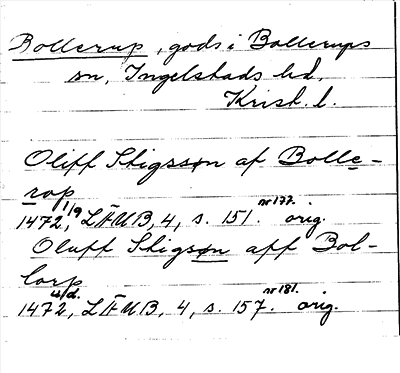 Bollerup, gods i Bollerups
sn, Ingelstads hd,
Krist. l.
Oliff Stigsson af Bolle-
rop
1472, 1/9 LÄUB, 4, s. 151. nr 177. orig.
Oluff Stigson aff Bol-
lorp
1472, u/d. LÄUB, 4, s. 157. nr 181. orig.